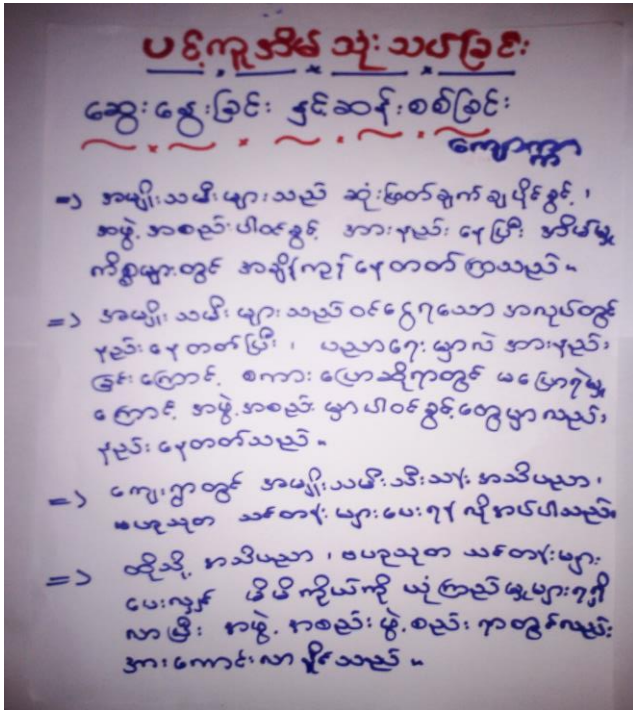 ပင့်ကူအိမ် သုံးသပ်ခြင်း
ဆွေးနွေးခြင်း နှင့်ဆန်းစစ်ခြင်း
ကျောက္ကာ
=> အမျိုးသမီးများသည် ဆုံးဖြတ်ချက်ချပိုင်ခွင့်၊
အဖွဲ့အစည်းပါဝင်ခွင့် အားနည်းနေပြီး အိမ်မှု
ကိစ္စများတွင် အချိန်ကုန်နေတတ်ကြသည်။
=> အမျိုးသမီးများသည်ဝင်ငွေရသောအလုပ်တွင်
နည်းနေတတ်ပြီး၊ ပညာရေးမှာလဲအားနည်း
ခြင်းကြောင့် စကားပြောဆိုရာတွင် မပြောရဲမှု
ကြောင့် အဖွဲ့အစည်းမှာပါဝင်ခွင့်တွေမှာလည်း
နည်းနေတတ်သည်။
=> ကျေးရွာတွင် အမျိုးသမီးသီးသန့်အသိပညာ၊
ဗဟုသုတ သင်တန်းများပေးရန် လိုအပ်ပါသည်။
=> ထိုသို့ အသိပညာ၊ ဗဟုသုတ သင်တန်းများ
ပေးလျှင် မိမိကိုယ်ကို ယုံကြည်မှုများရရှိ
လာပြီး အဖွဲ့အစည်းဖွဲ့စည်းရာတွင်လည်း
အားကောင်းလာနိုင်သည်။